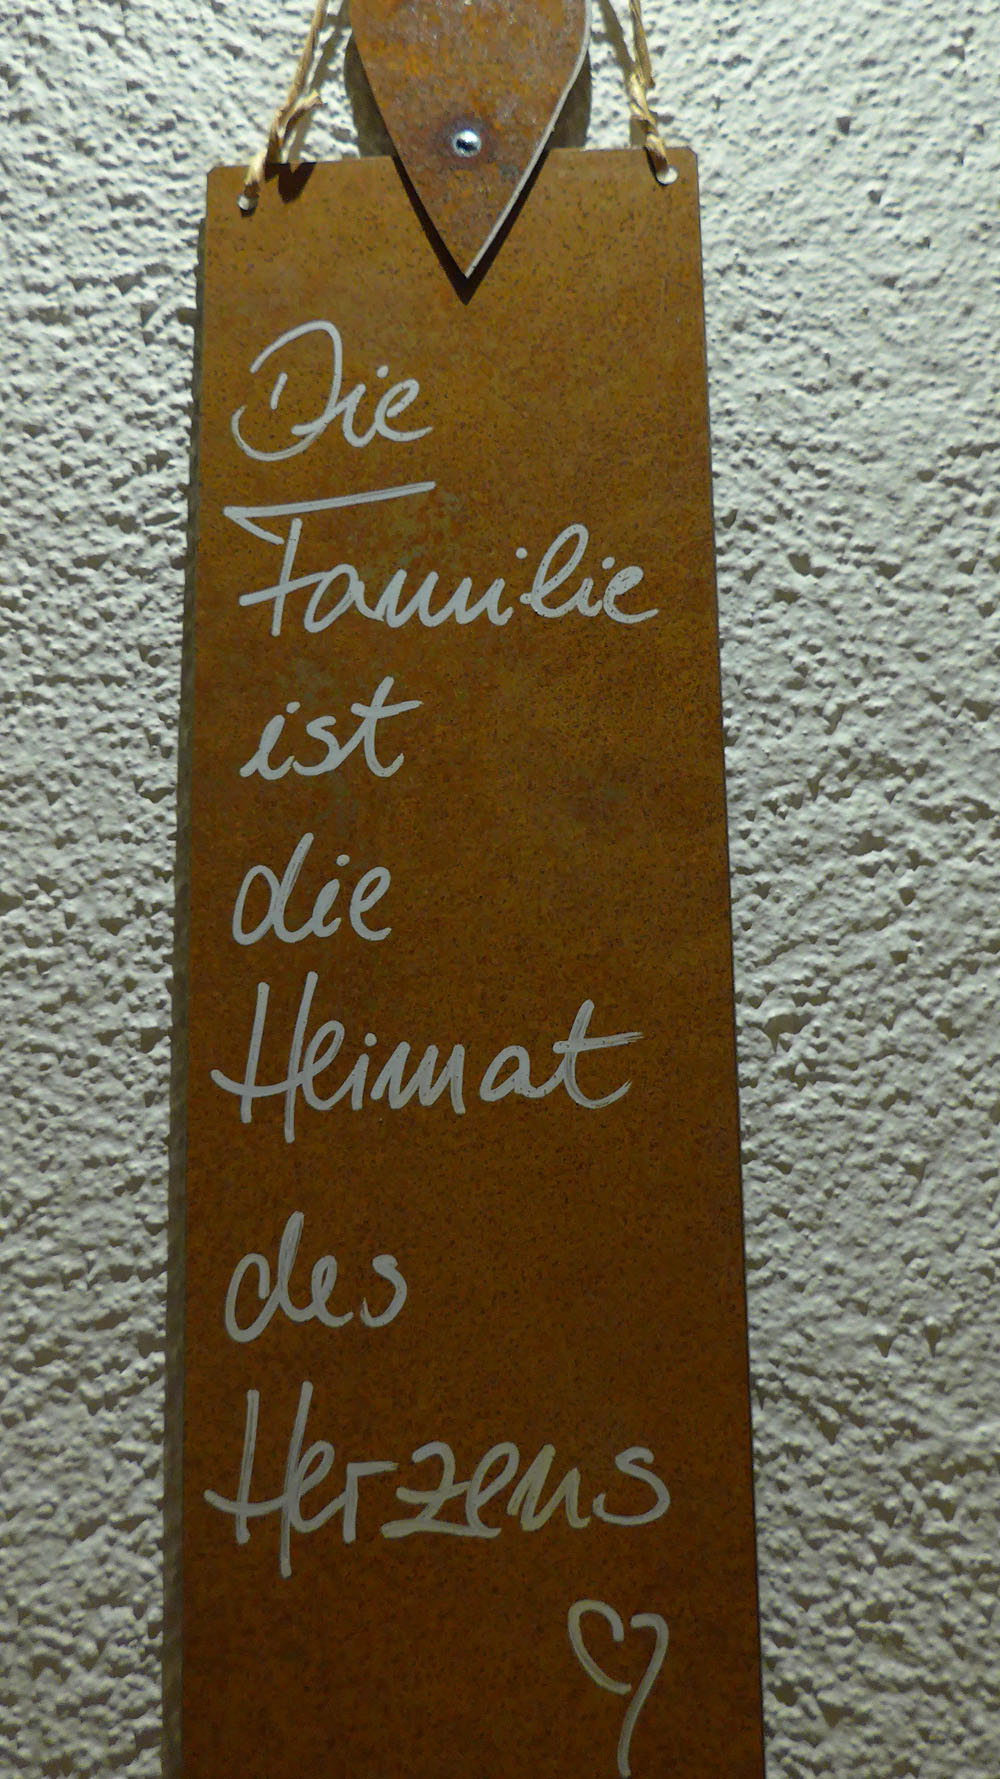 Die
Familie
ist
die
Heimat
des
Herzens